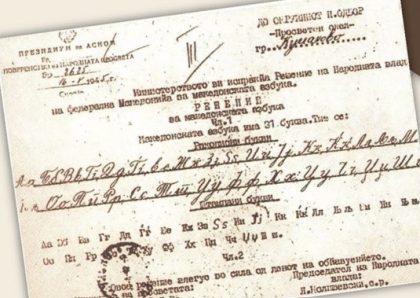 ПРЕЗИДИУМ НА АСНОМ
ПОВЕРЕНСТВО НА НАРОДНАТА ПРОСВЕТА
Бр. 2625
16-V-1945 г.
Скопје
ДО ОКРУЖНИОТ Н.ОДБОР
-Просветен одел-
гр. Куманово
III
Министерството ви испраќа Решение на Народната влада
на федерална Македонија за македонската азбука.
РЕШЕНИЕ
за македонската азбука
Чл.1
Македонската азбука има 31 буква. Тие се:
Ракописни букви
Аа Бб Вв Гг Дд Ѓѓ Ее Жж Зз Ѕѕ Ии Јј Кк Лл Мм
Оо Пп Рр Сс Тт Уу Фф Хх Цц Чч Шш
Печатни букви
Аа Бб Вв Гг Дд Ѓѓ Ее Жж Зз Ѕѕ Ии Јј Кк Лл Љљ Мм Нн Њњ
Оо Пп Рр Сс Тт Ќќ Уу Фф Хх Цц Чч Џџ Шш
Чл.2
Ова решение влегува во сила од денот на објавувањето.
Председател на Народната
влада:
Л.Колишевски,с.р.